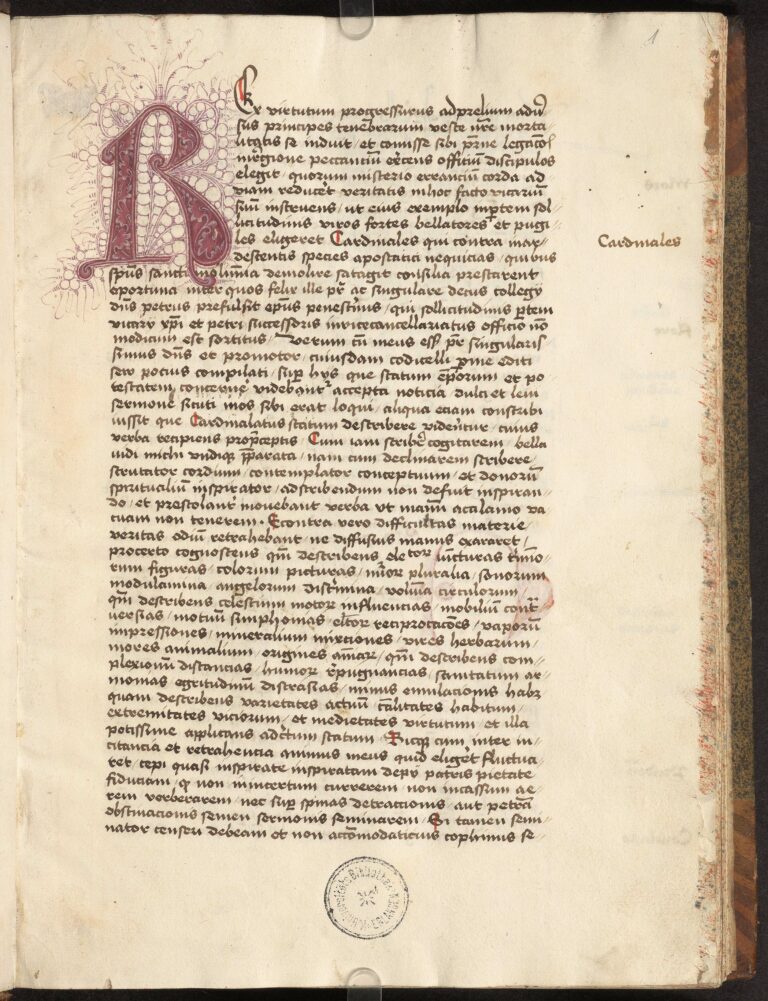 1
Rex virtutum progressurus ad prelium adv̓
sus principes tenebrarum veste nr̃e morta
litatis se induit / et comisse sibi pr̃ne legacõi
peccancium exercens officium discipulos
elegit / quorum misterio erranciũ corda ad
viam reducẽt veritatis in hoc facto vicariũ
suũ instruens / ut eius exemplo in ptem sol
licitudinis viros fortes bellatores et pugi
les eligeret Cardinales qui contra
Cardinales
species apostatici nequicias / quibus
spũs sancti demolire satagit consilia prestarent
oportuna inter quos felix ille pr̃ ac singulare decus collegy
dñs petrus prefulsit ep̃us penestrinus / qui sollicitudinis ptem
vicary xp̃i et petri successoris in vicecancellariatus officio nõ
modicum est sortitus / Verum cũ meus ess& pr̃ singularis
simus dñs et promotor / cuiusdam codicelli p me editi
seu pocius compilati / sup hys que statum ep̃orum et po
testatem concerne videbant̃ accepta noticia dulci et leni
sermone sicuti mos sibi erat loqui / aliqua eciam conscribi
iussit que Cardinalatus statum describere viderẽtur / cuius
verba recipiens pro p̃ceptis / Cum iam scribe cogitarem / bella
vidi michi undiqȝ p̃parata / nam cum declinarem scribere /
scrutator cordium / contemplator conceptuum / et donorũ
spiritualiũ inspirator / ad scribendum non desiit inspiran
do / et prestolant̃ monebant verba ut manũ a calamo va
cuam non tenerem . Econtra vero difficultas materie /
veritas odiũ retrahebant / ne diffusius manus exararet /
pro certo cognoscens qm̃ describens iuncturas
rum figuras / colorum picturas / pluralia / sonorum
modulamina / angelorum discrimina / volũina circulorum /
qm̃ describens celestium motor influencias / mobiliũ cont̃
versias / motuũ simphonias / reciprocacões / vaporũ
impressiones / mineralium mixtiones / vires herbarum /
mores animalium / origines / qm̃ describens com
plexionũ distancias / humor repugnancias / sanitatum ar
monias egritudinũ distrasias / nimis emulacionis habȝ
quam describens varietates actuũ / habitum /
extremitates viciorum / et medietates virtutum / et illa
potissime applicans ad statum . Sicqȝ cum inter in
citancia et retrahencia animus meus quid eliger& fluctua
ret / cepi quasi inspirate inspiratam de patris pietate
fiduciam / qȝ non in incertum currerem non incassum ae
rem verberarem / nec sup spinas detractionis aut petrã
obstinacionis semen sermonis seminarem / Si tamen semi
nator censeri debeam et non accõmodaticius cophinus se